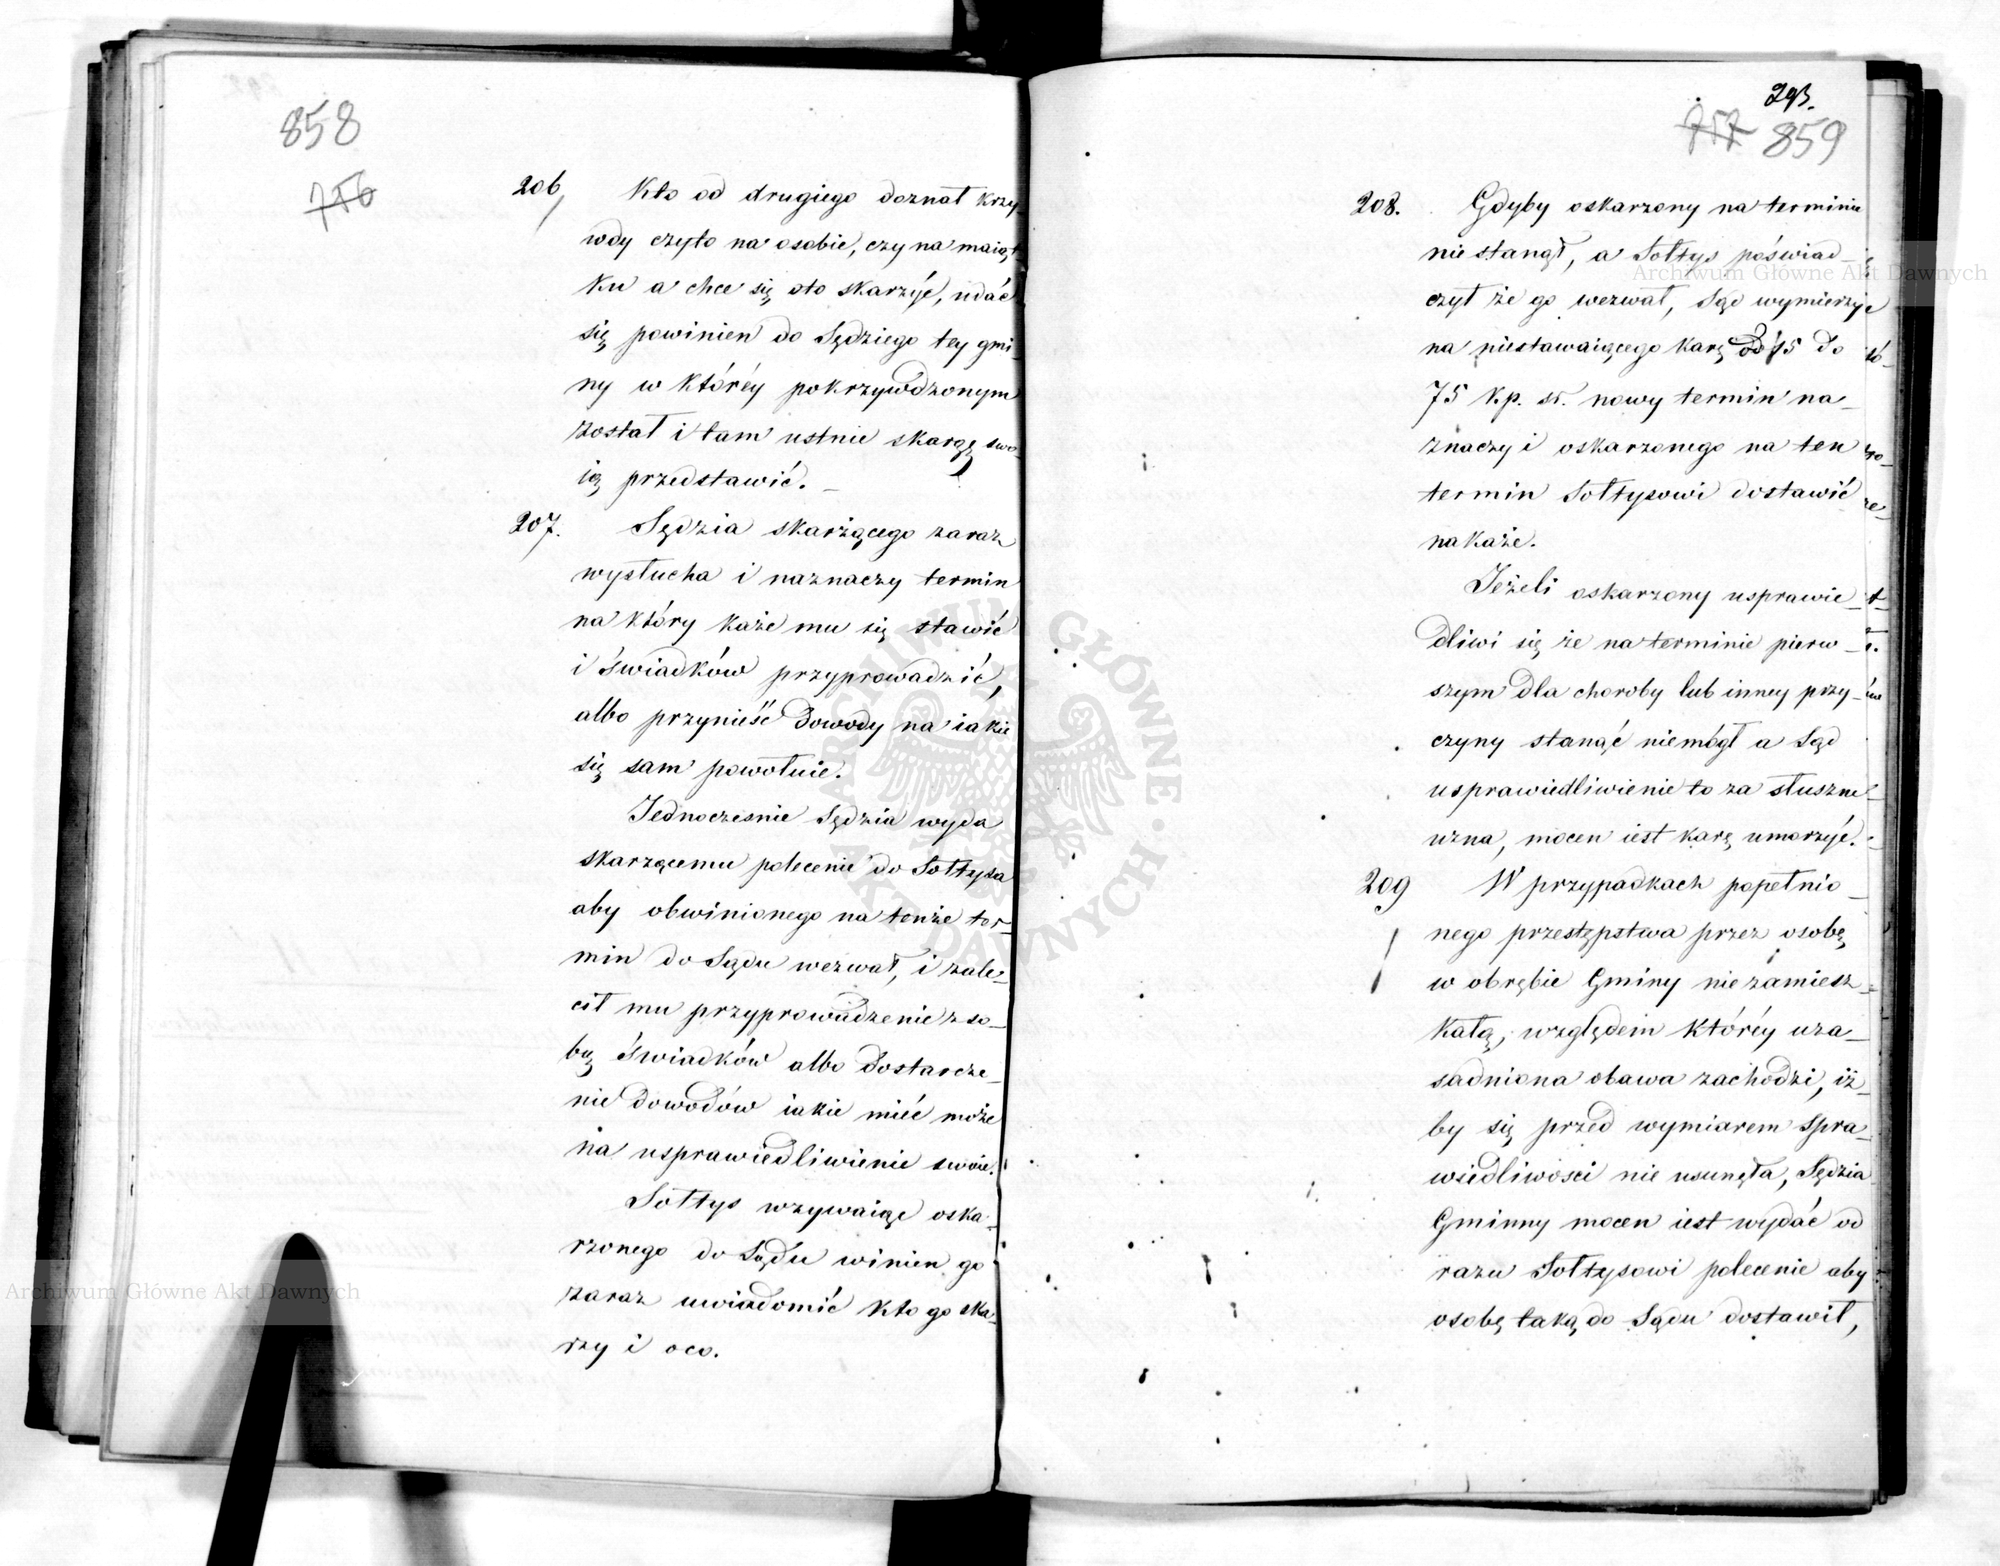 858
756
206, Kto od drugiego doznał krzy-
wdy czyto na osobie, czy na maiąt-
ku a chce się oto skarzyć, udać
się powinien do Sędziego tey gmi-
ny w któréy pokrzywdzonym
został i tam ustnie skargę swo-
ią przedstawić. –
207. Sędzia skarżącego zaraz
wysłucha i naznaczy termin
na który każe mu się stawić
i świadków przyprowadzić,
albo przynieść dowody na iakie
się sam powołuie.
Jednocześnie Sędzia wyda
skarzącemu polecenie do Sołtysa
aby obwinionego na tenże ter-
min do Sądu wezwał, i zale-
cił mu przyprowadzenie z so-
bą świadków albo dostarcze-
nie dowodów iakie mieć może
na usprawiedliwienie swoie.
Sołtys wzywaiąc oska-
rzonego do Sądu winien go
zaraz uwiadomić kto go ska-
rzy i oco.
293.
757 859
208. Gdyby oskarzony na terminie
nie stanął, a Sołtys poświad-
czył że go wezwał, Sąd wymierzy
na niestawaiącego karę od 15 do
75 kp. sr. nowy termin na-
znaczy i oskarzonego na ten
termin Sołtysowi dostawić
nakaże.
Jeżeli oskarzony usprawie-
dliwi się że na terminie pierw-
szym dla choroby lub inney przy-
czyny stanąć niemógł a Sąd
usprawiedliwienie to za słuszne
uzna, mocen iest karę umorzyć.
209 W przypadkach popełnio-
nego przestępstwa przez osobę
w obrębie Gminy nie zamiesz-
kałą, względem któréy uza-
sadniona obawa zachodzi, iż-
by się przed wymiarem spra-
wiedliwości nie usunęła, Sędzia
Gminny mocen iest wydać od
razu Sołtysowi polecenie aby
osobę taką do Sądu dostawił,
Archiwum Główne Akt Dawnych
Archiwum Główne Akt Dawnych
ARCHIWUM GŁÓWNE AKT DAWNYCH